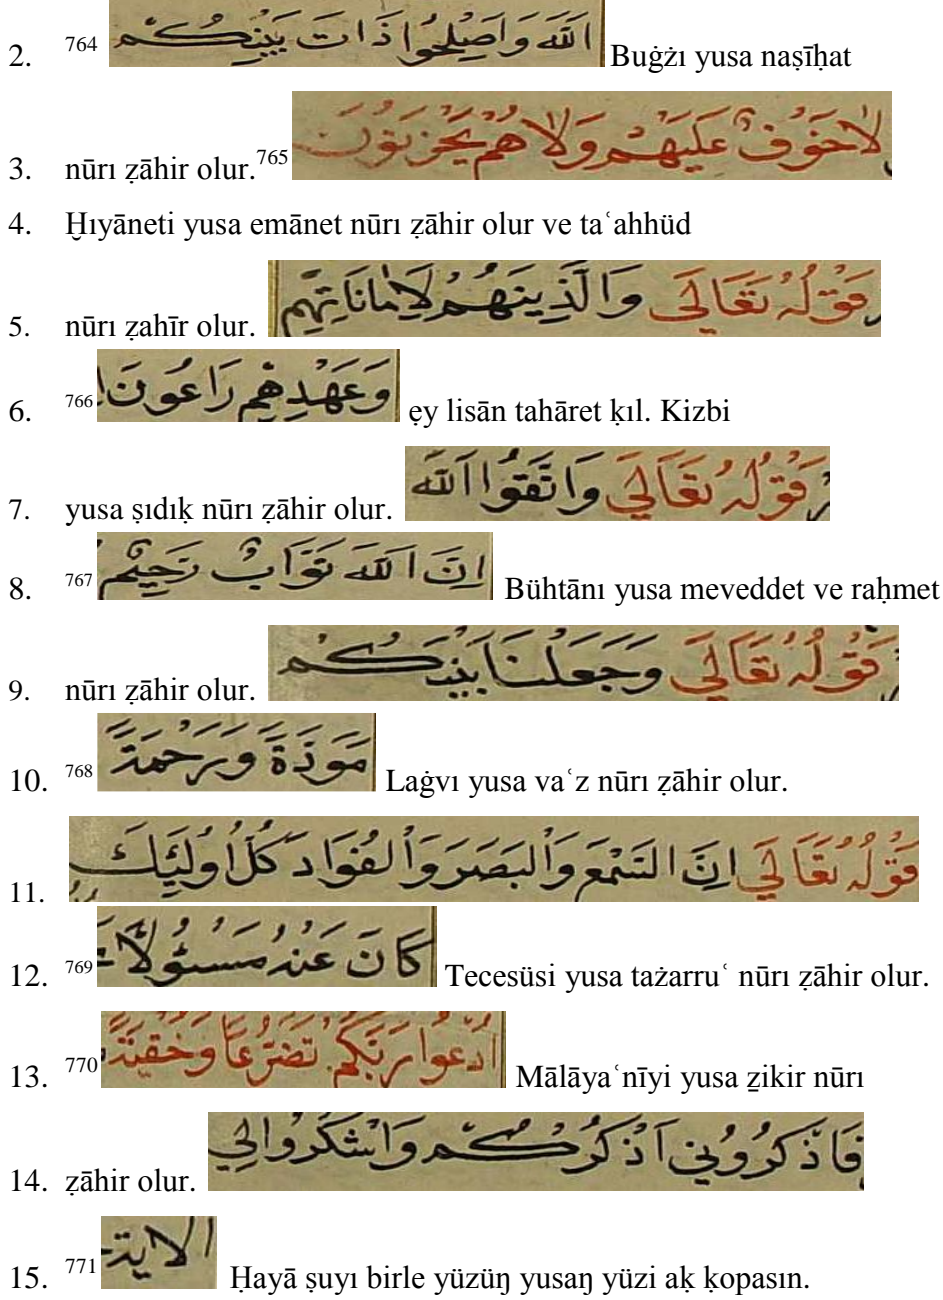 2. 764 اللَّهَ وَاَصْلِحُوا ذَاتَ بَيْنِكُمْ Buġżı yusa naṣīḥat
3. nūrı ẓāhir olur.765 لَا خَوْفٌ عَلَيْهِمْ وَلَا هُمْ يَحْزَنُونَ
4. Ḫıyāneti yusa emānet nūrı ẓāhir olur ve taʿahhüd
5. nūrı ẓahīr olur. قَوْلُهُ تَعَالَى وَالَّذِينَ هُمْ لِاَمَانَاتِهِمْ
6. 766 وَعَهْدِهِمْ رَاعُونَ ẹy lisān tahāret ḳıl. Kizbi
7. yusa ṣıdıḳ nūrı ẓāhir olur. قَوْلُهُ تَعَالَى وَاتَّقُوا اللَّهَ
8. 767 اِنَّ اللَّهَ تَوَّابٌ رَحِيمٌ Bühtānı yusa meveddet ve raḥmet
9. nūrı ẓāhir olur. قَوْلُهُ تَعَالَى وَجَعَلْنَا بَيْنَكُمْ
10. 768 مَوَدَّةً وَرَحْمَةً Laġvı yusa vaʿz nūrı ẓāhir olur.
11. قَوْلُهُ تَعَالَى اِنَّ السَّمْعَ وَالْبَصَرَ وَالْفُوَادَ كُلُّ اُولَئِكَ
12. 769 كَانَ عَنْهُ مَسْئُولًا Tecesüsi yusa tażarruʿ nūrı ẓāhir olur.
13. 770 اُدْعُوا رَبَّكُمْ تَضَرُّعًا وَخُفْيَةً Mālāyaʿnīyi yusa ẕikir nūrı
14. ẓāhir olur. فَاذْكُرُونِي اَذْكُرْكُمْ وَاشْكُرُوا لِي
15. 771 الاية Ḥayā ṣuyı birle yüzüŋ yusaŋ yüzi aḳ ḳopasın.